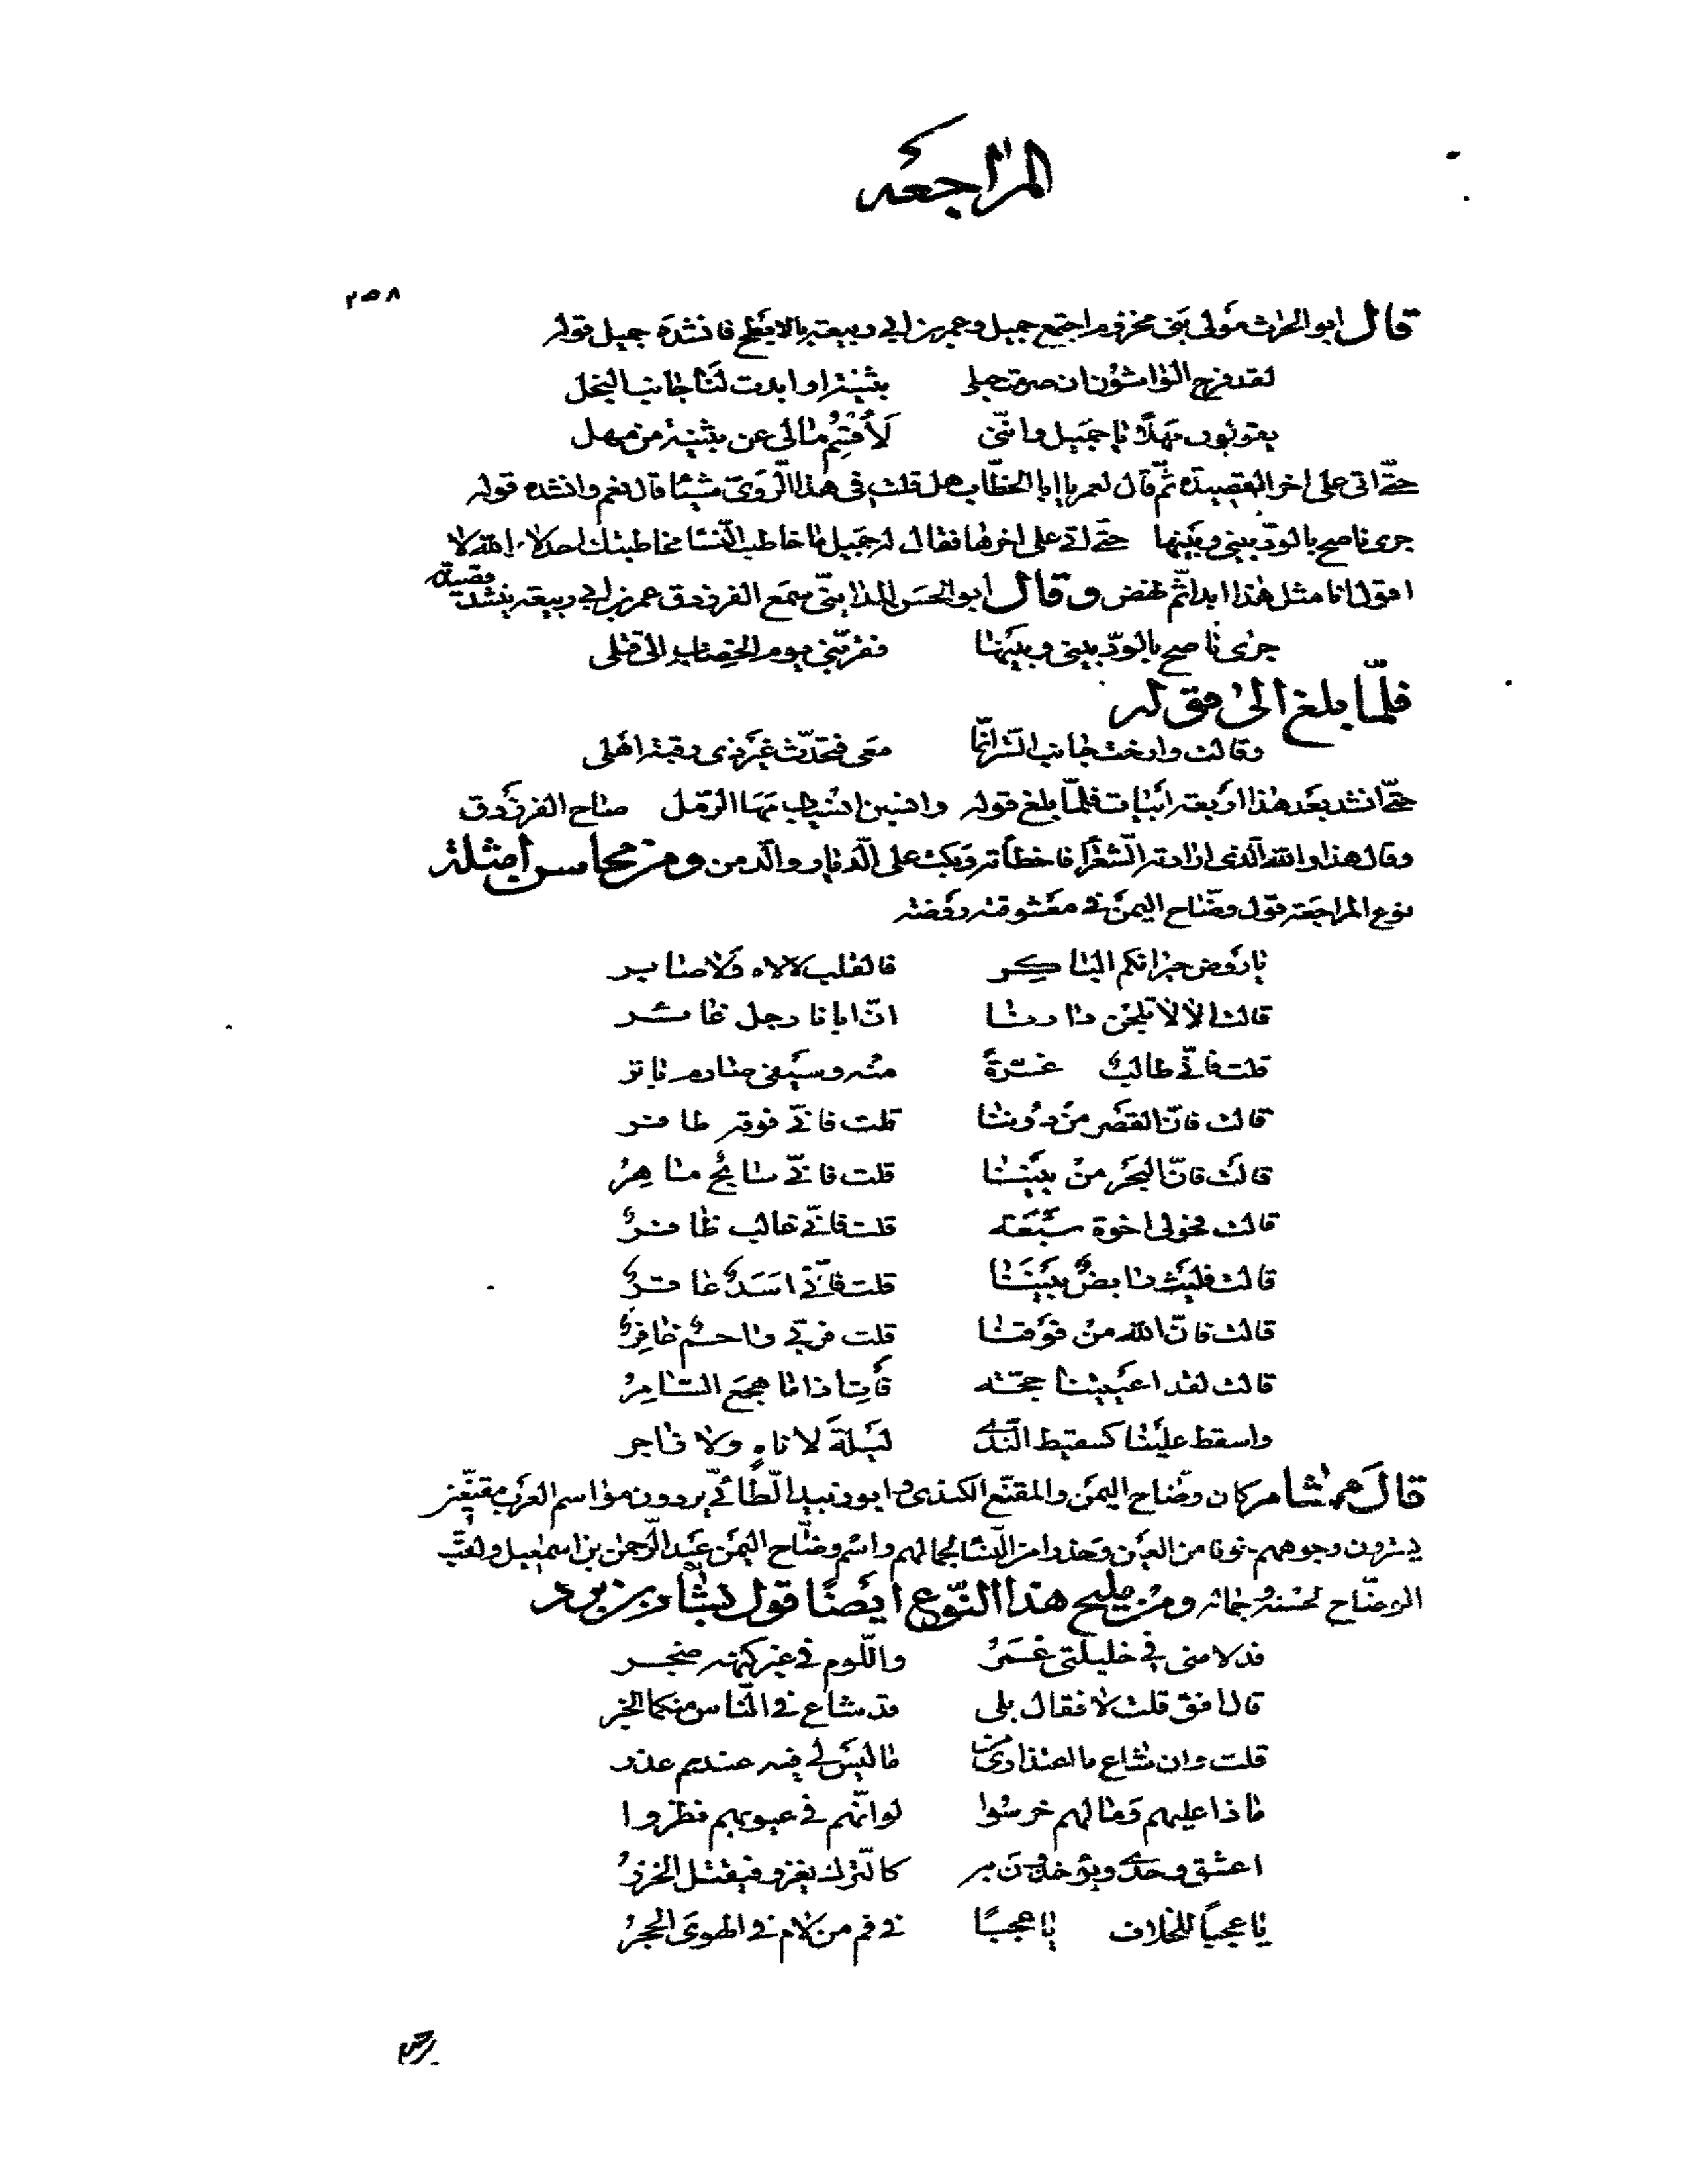 المراجعه
٢٥٨
قال ابو الحرث مولى بنى مخزوم اجتمع جميل وعمر بن ابي ربيعة بالابطح فانشده جميل قوله
لقد فرح الواشون ان صرمت حبلى بثينة او ابدت لنا جانب البخل
يقولون مهلًا يا جميل واننّى لَأُقْسِمُ مالى عن بثينة من مهل
حتّى اتى على اخر القصيدة ثمّ قال لعمر يا ابا الخطّاب هل قلت فى هذا الرّوىّ شيئا قال نعم وانشده قوله
جرى ناصح بالودّ بينى وبينها حتّى اتى على اخرها فقال له جميل ما خاطب النّسا مخاطبتك احد لا والله لا
اقول انا مثل هذا ابدا ثّم نهض وقال ابو الحسن المداينّى سمع الفرزدق عمر بن ابي ربيعة ينشد قصيدته
جرى ناصح بالودّ بينى وبينها فقرّبنى يوم الحصاب الى قتلى
فلمّا بلغ الى قوله
وقالت وارخت جانب السّتر انّما معى فتحدّث غير ذى رقبة اهلى
حتّى انشد بعد هذا اربعة ابيات فلمّا بلغ قوله صاح الفرزدق
وقال هذا والله الّذى ارادته الشّعرا فاخطأته وبكت على الدّيار والدّمن ومن محاسن امثلة
نوع المراجعة قول وضّاح اليمن فى معشوقته روضة
يا روض جيرانكم الباكر فالقلب لا لاه ولا صابر
قالت الا لا تلجن دارنا انّ ابانا رجل غاير
قلت فانّى طالبٌ غرّةً منه وسيفى صارم باتر
قالت فانّ القصر من دوننا قلت فانّى فوقه ظاهر
قالت فانّ البحر من بيننا قلت فانّى سابحٌ ماهرُ
قالت فحولى اخوة سبعة قلت فانّى غالب ظافرٌ
قالت فليث رابضٌ بيننا قلت فانّى اسدٌ عاقرٌ
قالت فانّ الله من فوقنا قلت فربّى راحمٌ غافرٌ
قالت لقد اعييتنا حجّة فأت اذا ما هجع السّامرُ
واسقط علينا كسقيط النّدى ليلةَ لا ناهٍ ولا زاجر
قال هشام كان وضّاح اليمن والمقنّع الكندى وابو زبيد الطّائىّ يردون مواسم العرب مقنّعين
يسترون وجوههم خوفا من العين وحذرا من النّسا لجمالهم واسم وضّاح اليمن عبد الرّحمن بن اسمعيل ولقّب
الوضّاح لحسنه وجماله ومن مليح هذا النّوع ايضًا قول بشّار بن برد
قد لامنى فى خليلتى عُمَرُ واللّوم فى غير كنهه ضجر
قال افق قلت لا فقال بلى قد شاع فى النّاس منكما الخبر
قلت وان شاع ما اعتذارى من ما ليس لى فيه عندهم عذر
ما ذا عليهم وما لهم خرسوا لو انّهم فى عيوبهم نظروا
اعشق وحدى ويؤخذون به كالتّرك يغزو فيقتل الخزرُ
يا عجباً للخلاف يا عجبًا فى فم من لام فى الهوى الحجرُ